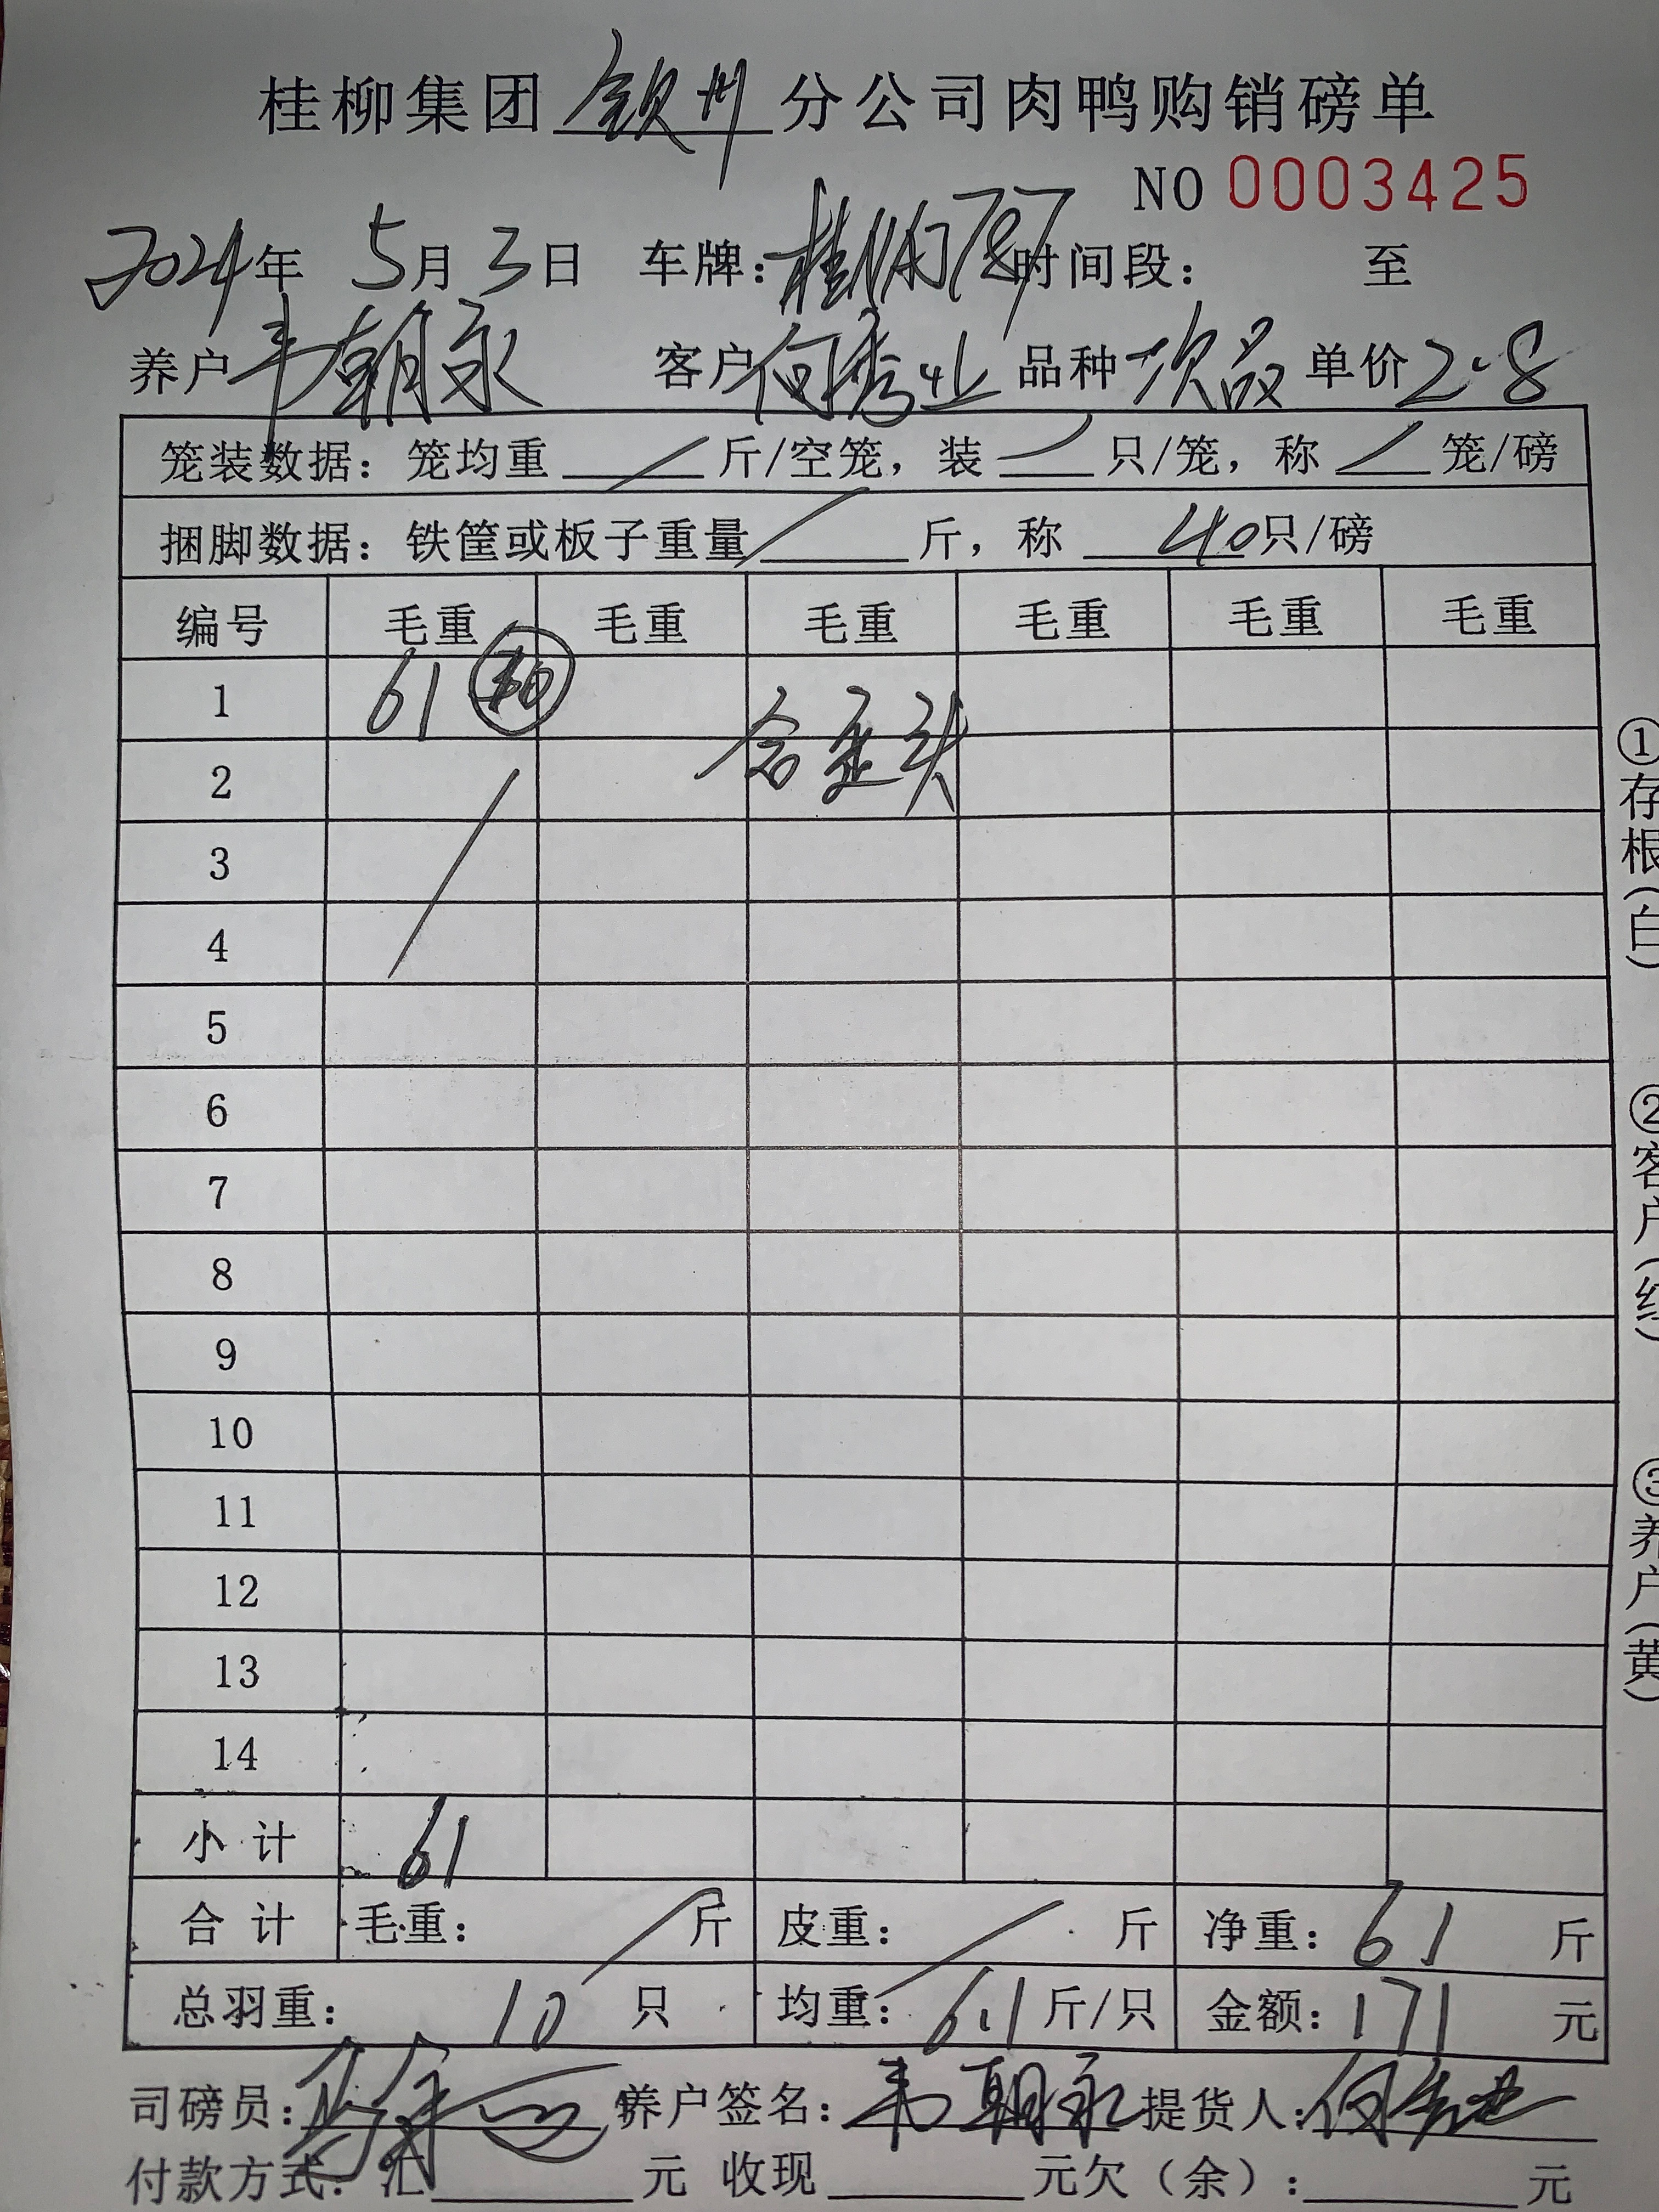 桂柳集团钦州分公司肉鸭购销磅单
NO 0003425
2024年 5月 3日 车牌:桂 787 时间段: 至
养户 韦朝永 客户 何秀业 品种 次品 单价 2.8
笼装数据: 笼均重 / 斤/空笼, 装 / 只/笼, 称 / 笼/磅
捆脚数据: 铁筐或板子重量 / 斤, 称 40只/磅
编号 毛重 毛重 毛重 毛重 毛重 毛重
1 61
含歪头
2
3
4
5
6
7
8
9
10
11
12
13
14
小 计 61
合 计 毛重: / 斤 皮重: / 斤 净重: 61 斤
总羽重: 10 只 均重: 6.1 斤/只 金额: 171 元
司磅员: 养户签名: 韦朝永 提货人: 何秀业
付款方式: 汇 元 收现 元欠(余): 元
①存根(白)
②客户(红)
③养户(黄)